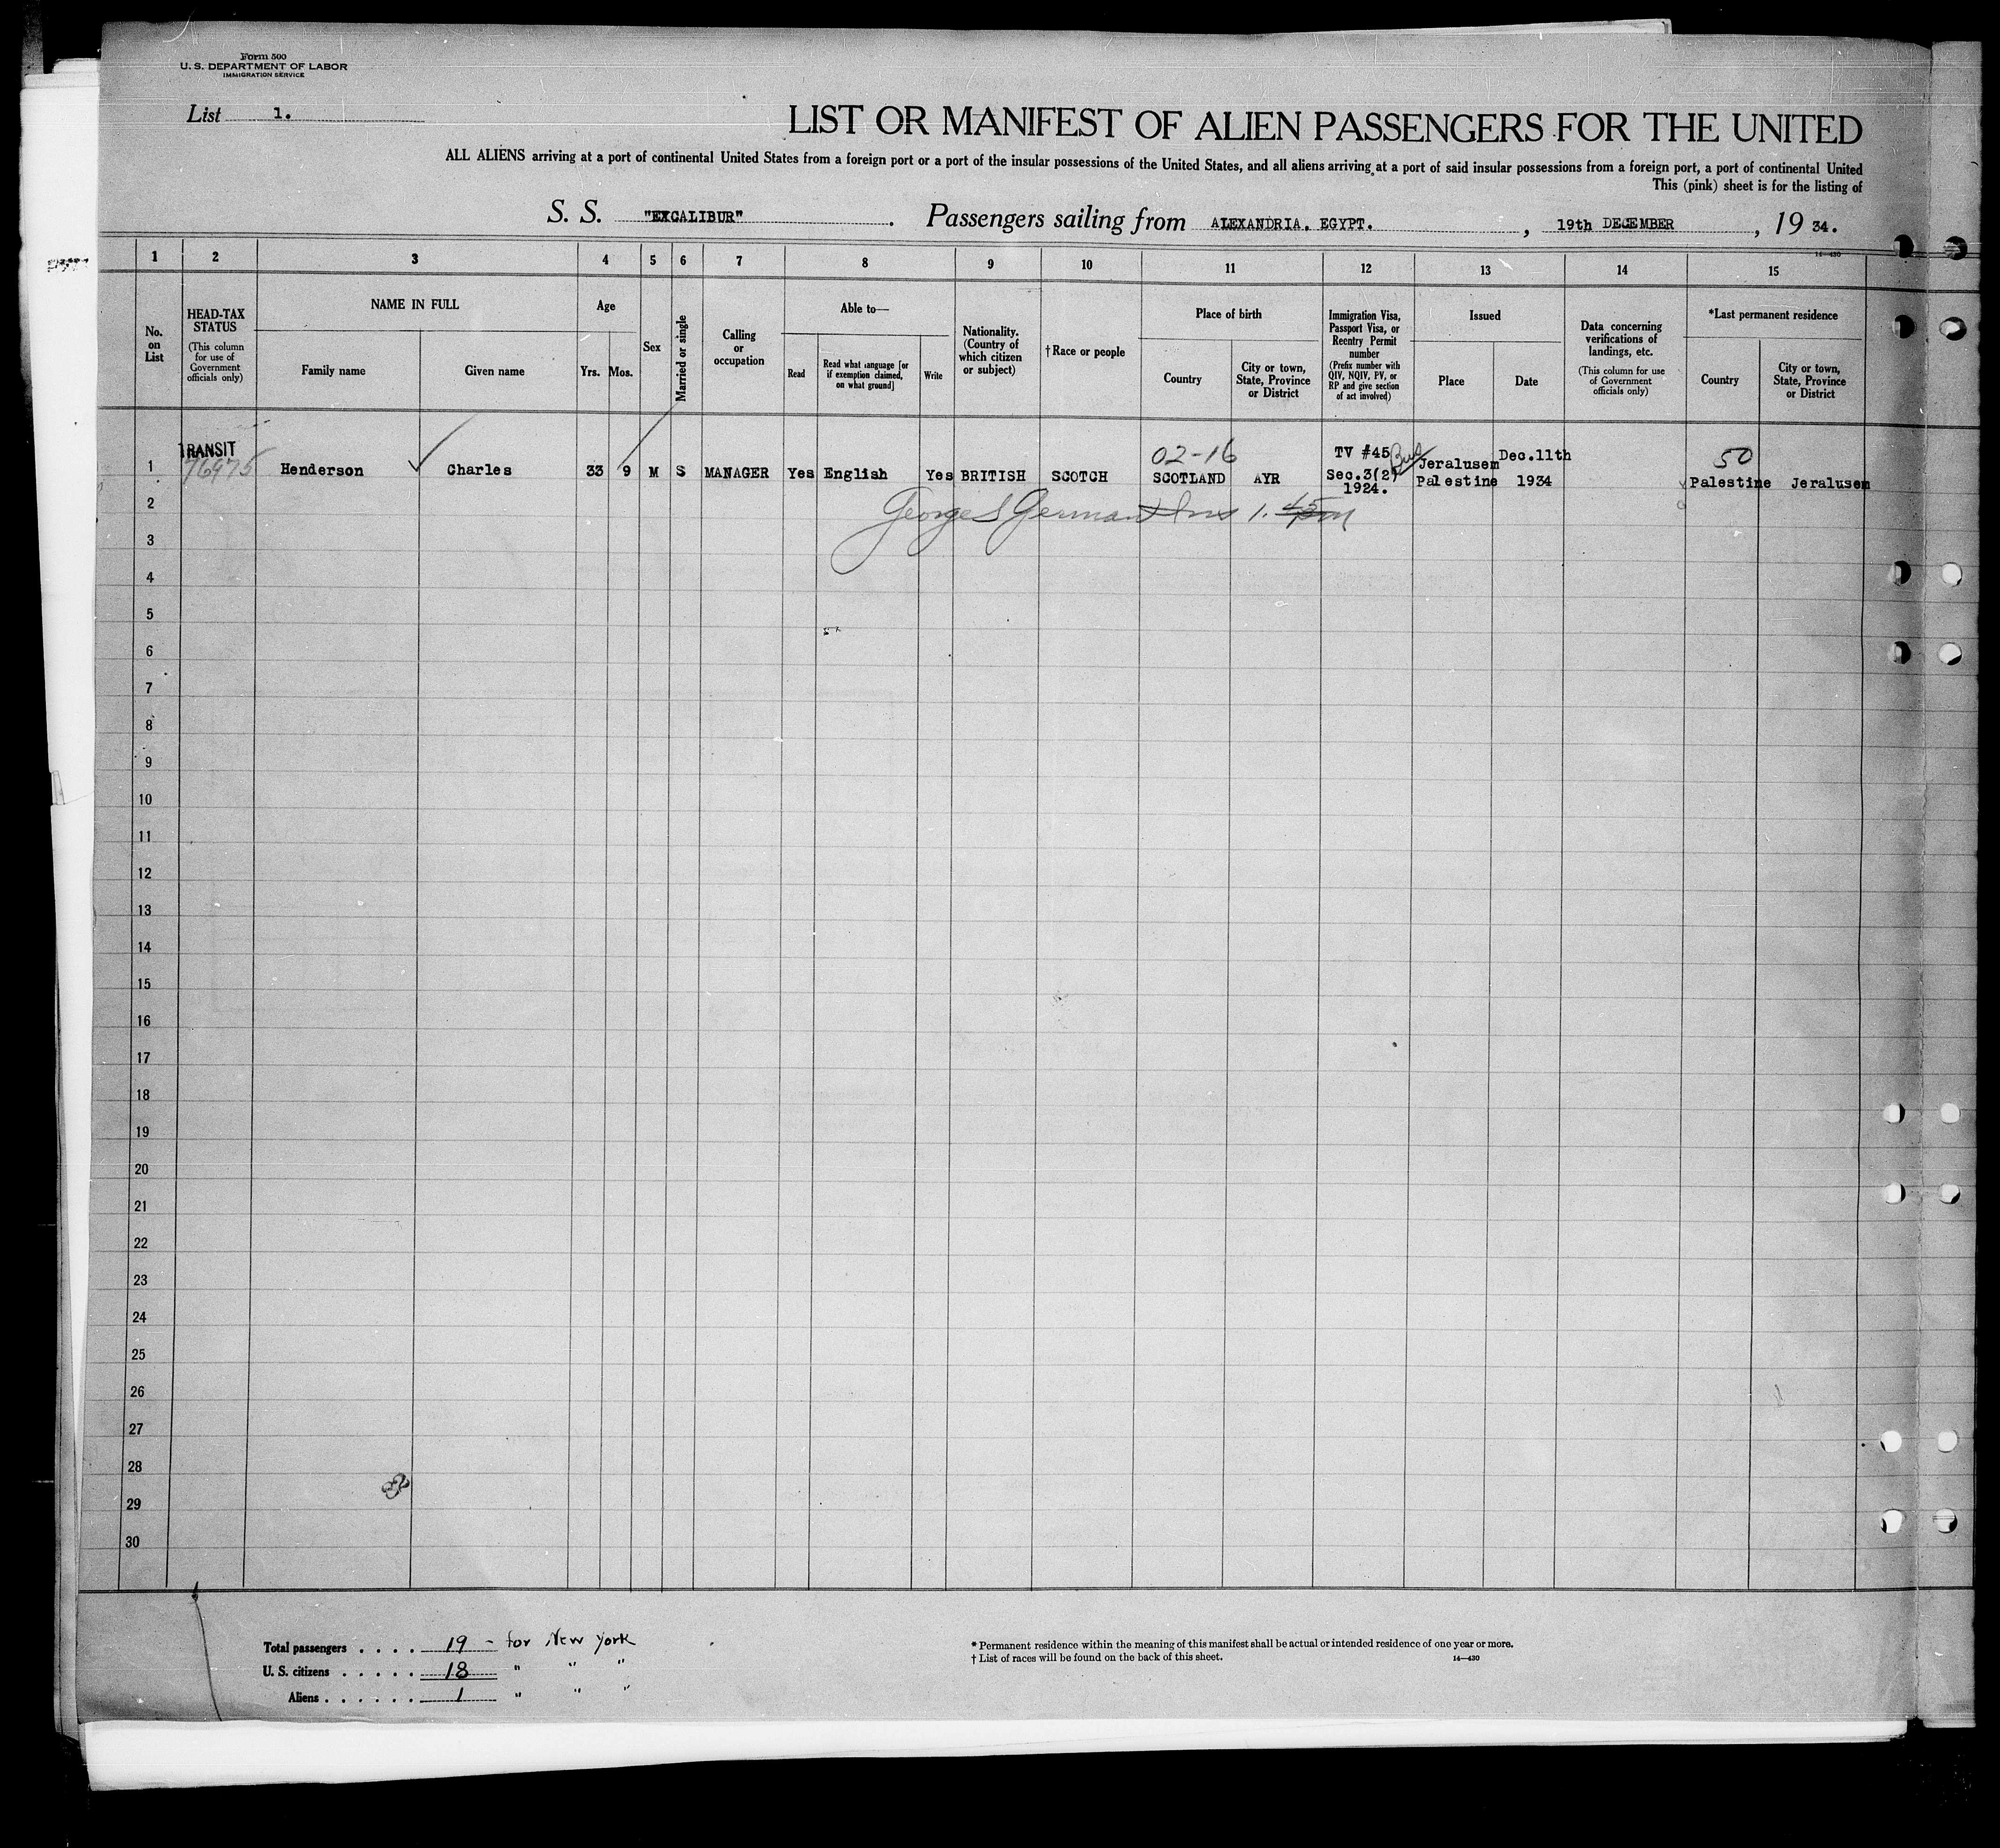 Form 500
U. S. DEPARTMENT OF LABOR
IMMIGRATION SERVICE
List 1.
LIST OR MANIFEST OF ALIEN PASSENGERS FOR THE UNITED
ALL ALIENS arriving at a port of continental United States from a foreign port or a port of the insular possessions of the United States, and all aliens arriving at a port of said insular possessions from a foreign port, a port of continental United
This (pink) sheet is for the listing of
S. S. "EXCALIBUR". Passengers sailing from ALEXANDRIA. EGYPT., 19th DECEMBER, 19 34.
14—430
1 2 3 4 5 6 7 8 9 10 11 12 13 14 15
No. on List
HEAD-TAX STATUS
(This column for use of Government officials only)
NAME IN FULL
Family name
Given name
Age
Yrs. Mos.
Sex
Married or single
Calling or occupation
Able to—
Read
Read what language [or if exemption claimed, on what ground]
Write
Nationality. (Country of which citizen or subject)
†Race or people
Place of birth
Country
City or town, State, Province or District
Immigration Visa, Passport Visa, or Reentry Permit number
(Prefix number with QIV, NQIV, PV, or RP and give section of act involved)
Issued
Place
Date
Data concerning verifications of landings, etc.
(This column for use of Government officials only)
*Last permanent residence
Country
City or town, State, Province or District
TRANSIT
76975
02-16
TV #45
Dec.11th
50
1 Henderson Charles 33 9 M S MANAGER Yes English Yes BRITISH SCOTCH SCOTLAND AYR Sec.3(2) 1924. Jeralusem Palestine 1934 Palestine Jeralusem
George S German
2
3
4
5
6
7
8
9
10
11
12
13
14
15
16
17
18
19
20
21
22
23
24
25
26
27
28
29
30
Total passengers . . . . 19 - for New York
U. S. citizens . . . . . 18 " " "
Aliens . . . . . . 1 " " "
* Permanent residence within the meaning of this manifest shall be actual or intended residence of one year or more.
† List of races will be found on the back of this sheet.
14—430